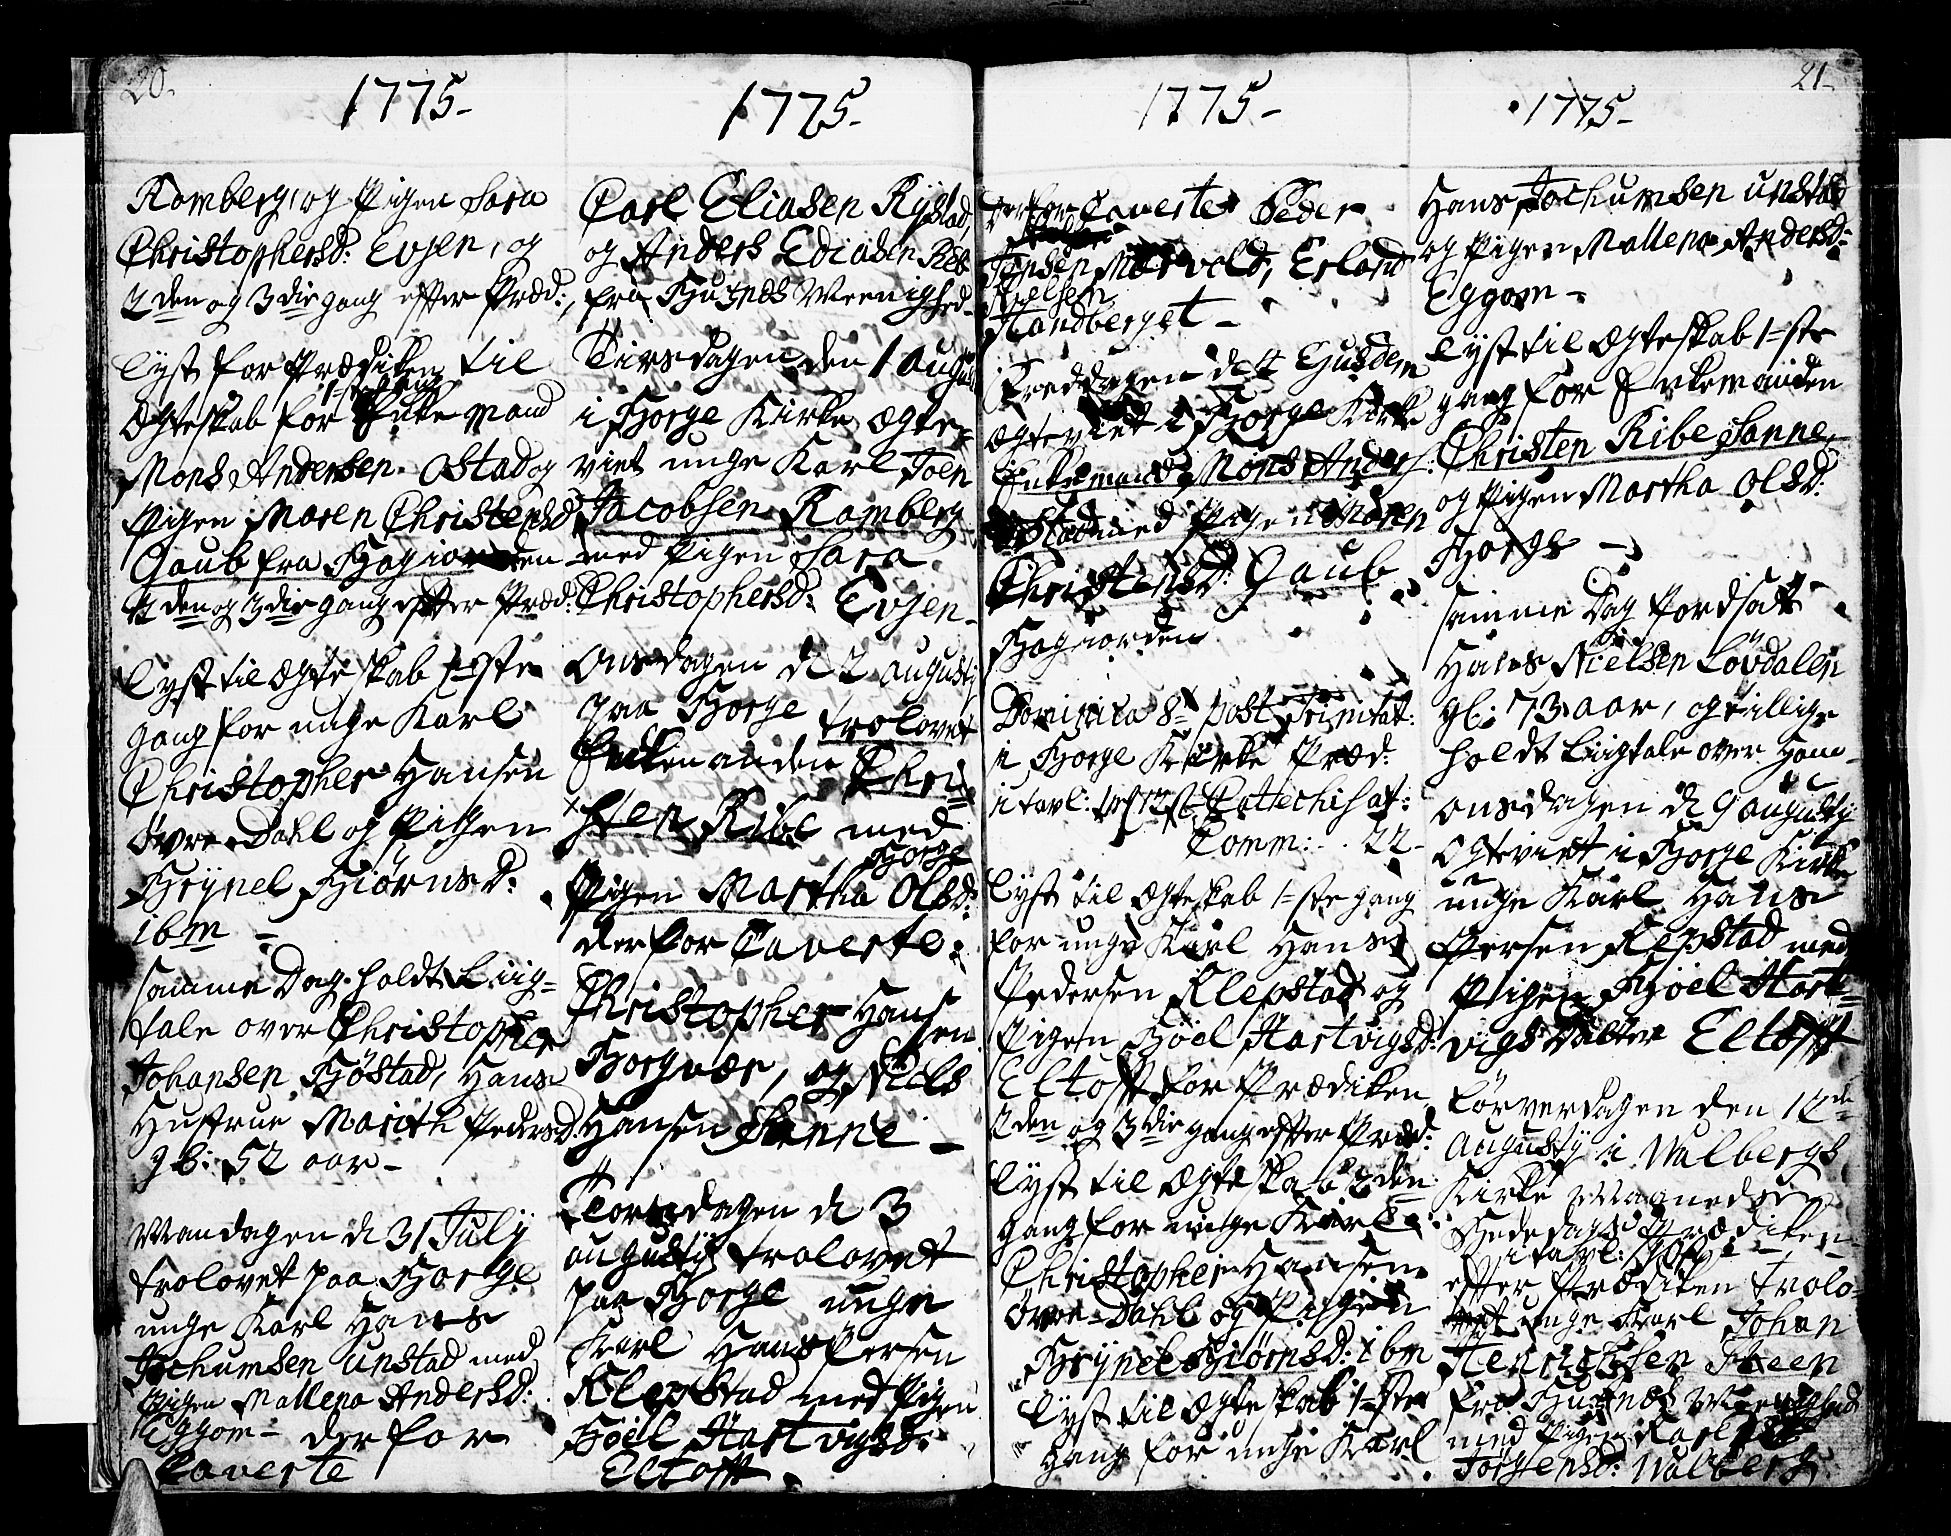 20.
1775-
Romberg, og Pigen Sara
Christophersd: Evjen, og
2den og 3die gang efter Præd:,
lyst for Prædiken til
1ste gang
Ægteskab for Enke Mand
Mons Andersen Ostad og
Pigen Maren Christensd
Gaub fra Bogiorden
2den og 3die gang efter Præd:
lyst til Ægteskab 1ste
gang for unge Karl
Christopher Hansen
Øvre-Dahl og Pigen
Brynel Biørnsd:
ibm -
samme Dag holdt Liig-
tale over Christopher
Johansen Bøstad, Hans
Hustrue Marith Pedersd:
gl: 52 aar-
Mandagen d 31 July
trolovet paa Borge
unge Karl Hans
Jochumsen Unstad med
Pigen Mallena Andersd:
Eggom - derfor
Caverte
1775-
Carl Eliasen Rystad,
og Anders Ediasen
fra Buxnæs Meenighed-
Tirsdagen den 1 August
i Borge Kirke Ægte-
viet unge Karl Joen
Jacobsen Romberg
med Pigen Sara
Christophersd: Evjen-
Onsdagen d 2 Augusti
paa Borge trolovet
Enkemanden Chri-
sten Ribe med
Borge
Pigen Martha Olsd:
derfor Caverte:
Christopher Hansen
Borgvær, og Niels
Hansen Sanne -
Torsdagen d 3
Augusty trolovet
paa Borge unge
Karl Hans Persen
Klepstad med Pigen
Bøell Hartvigsd:
Eltoft
1775-
derfor Caverte Peder
Jensen Mærvold, Erland
Nielsen
Sandberget-
Fredagen d 4 Ejusdem
Ægteviet i Borge Kirke
Enkemand Mons Anders:
Ostad med Pigen Maren
Christensd: Gaub
Bogiorden
Dominica 8- post Trinitat:
i Borge Kirke Præd:
i tavl: Cattechisat:
Comm: 22-
lyst til Ægteskab 1ste gang
for unge Karl Hans
Pedersen Klepstad og
Pigen Bøel Hartvigsd:
Eltoft for Prædiken,
2den og 3die gang efter Præd:
lyst til Ægteskab 2den
gang for unge Karl
Christopher Hansen
Øvre-Dahl og Pigen
Brynel Biørnsd: ibm
lyst til Ægteskab 1ste
gang for unge Karl
21-
1775-
Hans Jochumsen Unstad
og Pigen Mallena Andersd:
Eggom -
lyst til Ægteskab 1ste
gang for Enkemanden
Christen Ribe Sanne,
og Pigen Martha Olsd:
Borge -
samme Dag Jordsatt
Hans Nielsen Løvdalen
gl: 73 aar, og tillige
holdt Liigtale over Ham-
Onsdagen d 9 Augusty
Ægteviet i Borge Kirke
unge Karl Hans
Persen Klepstad med
Pigen Bøel Hart-
vigs Datter Eltoft
Løverdagen den 12de
Augusty i Walbergs
Kirke
Bededags Prædiken-
i tavl:
efter Prædiken trolo-
vet unge Karl Johan
Henrichsen Steen
fra Buxnæs Meenighed
med Pigen Karl
Jørgensd: Walberg